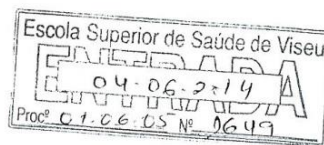 Escola Superior de Saúde de Viseu
ENTRADA
04-06-2014
Procº 01.06.05 Nº 9649